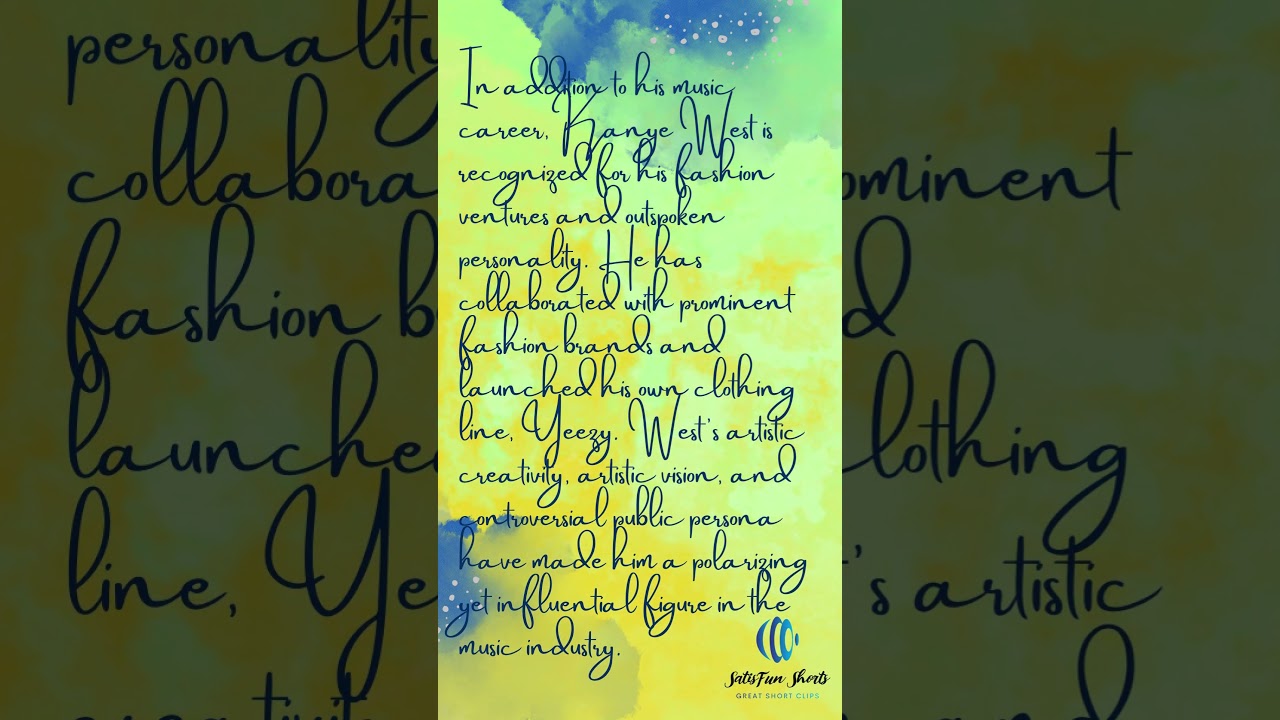 In addition to his music
career, Kanye West is
recognized for his fashion
ventures and outspoken
personality. He has
collaborated with prominent
fashion brands and
launched his own clothing
line, Yeezy. West's artistic
creativity, artistic vision, and
controversial public persona
have made him a polarizing
yet influential figure in the
music industry.
SatisFun Shorts
GREAT SHORT CLIPS
personality
collabora
ominent
fashion b
d
launche
lothing
line, Ye
's artistic
creativit
and